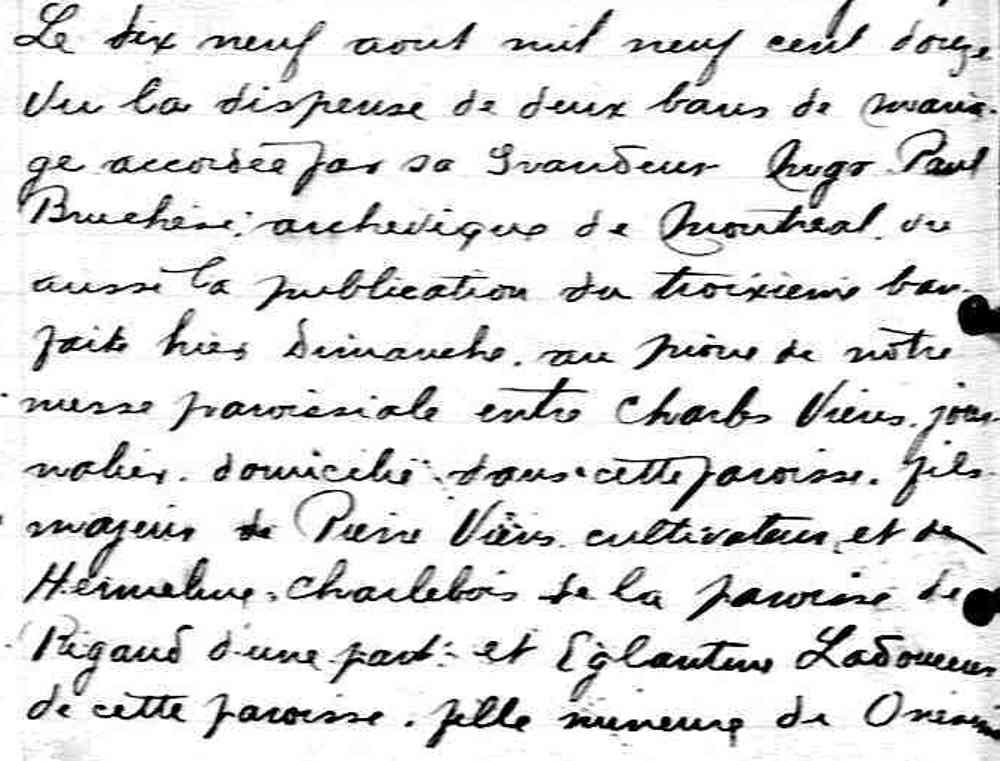 Le dix neuf aout mil neuf cent douze
Vu la dispense de deux bans de maria-
ge accordée par sa Grandeur Mgr Paul
Bruchési, archevêque de Montréal, vu
aussi la publication du troixieme ban
faite hier Dimanche, au prône de notre
messe paroissiale entre Charles Viens, jour-
nalier, domicilié dans cette paroisse, fils
majeur de Pierre Viens, cultivateur, et de
Hermeline Charlebois de la paroisse de
Rigaud d'une part: et Eglantine Ladouceur
de cette paroisse, fille mineure de